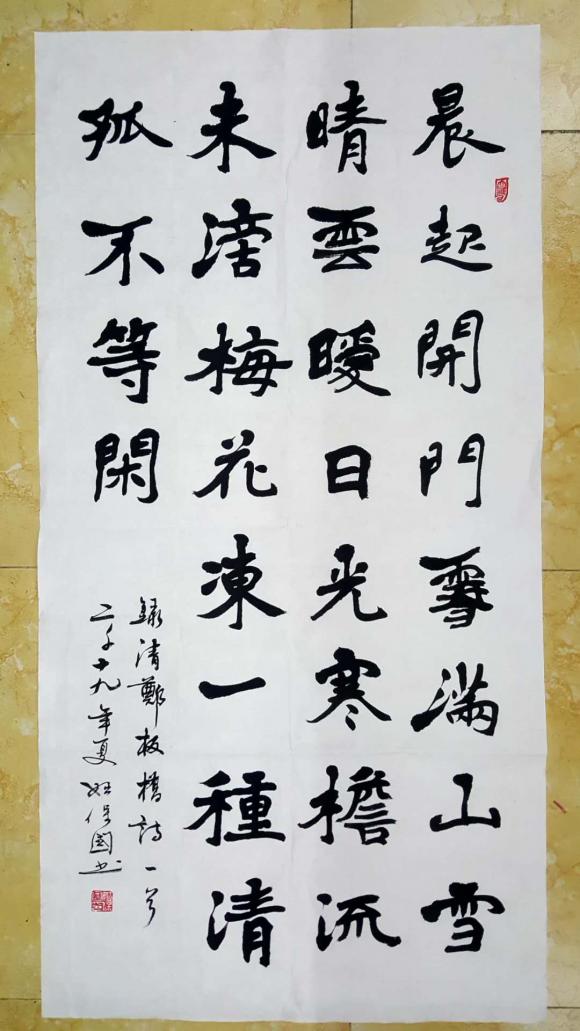 晨起開門雪滿山雪
晴雲曖日光寒檐流
未滴梅花凍一種清
孤不等閑
録清鄭板橋詩一首
二千十九年夏 保國书